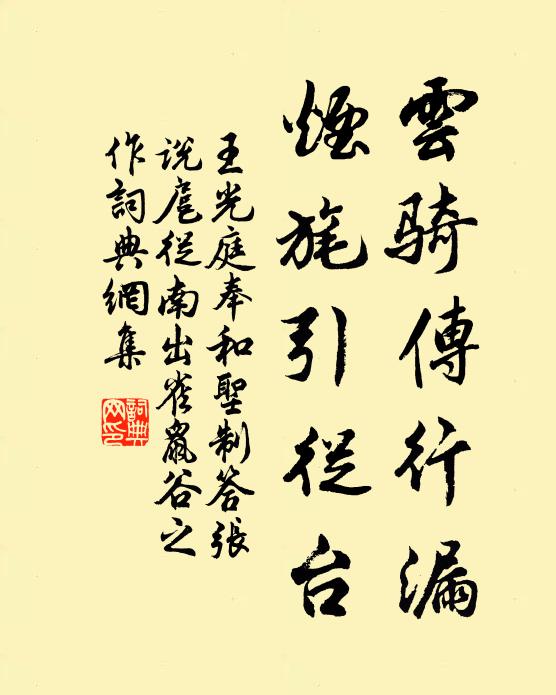 雲騎傳行漏
煙旄引從台
王光庭奉和聖制答張
說扈從南出雀鼠谷之
作詞典網集
詞典
网印